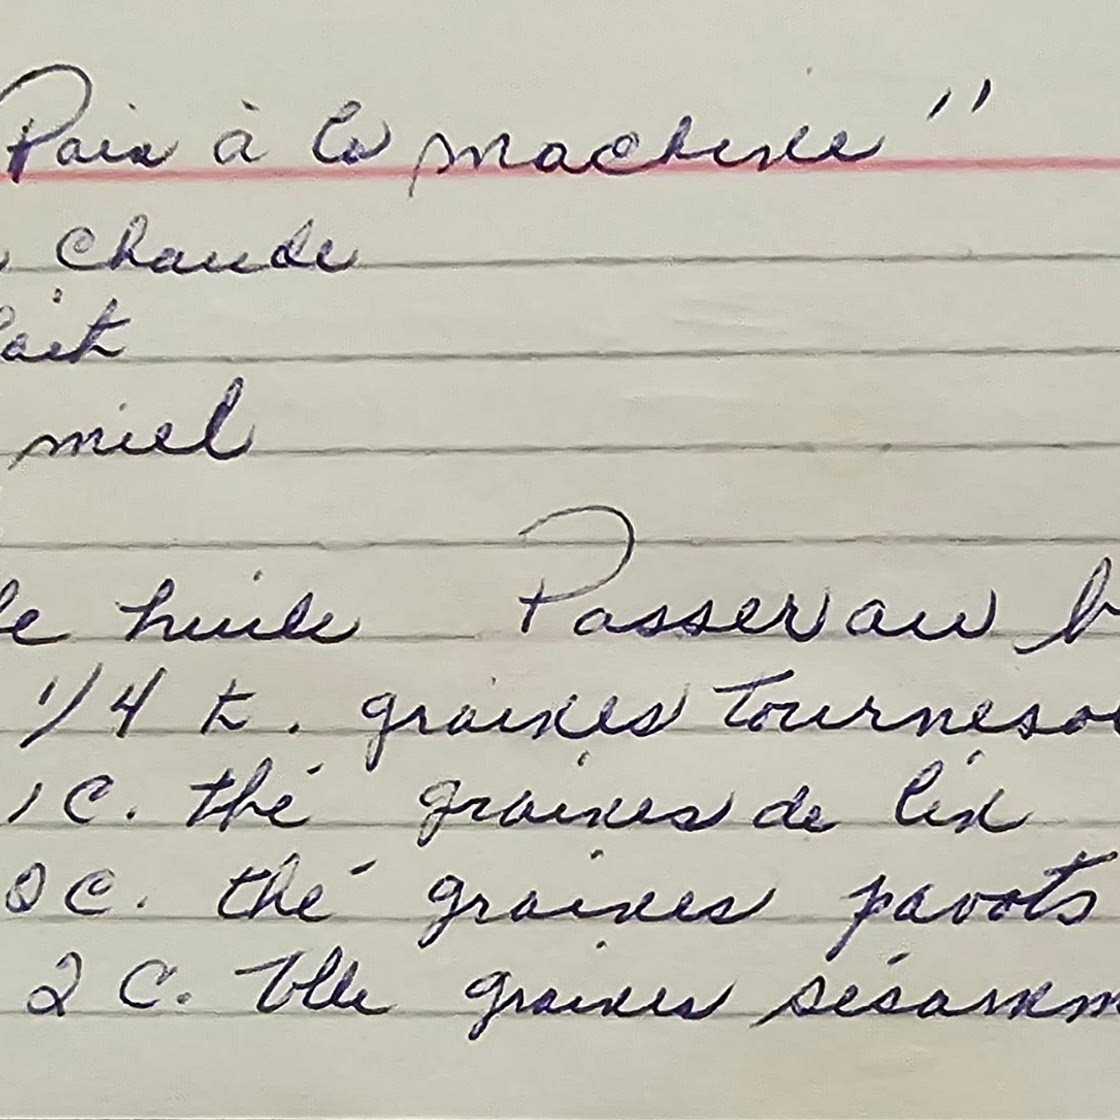 Pain à la machine"
chaude
lait
miel
huile Passer au
1/4 t. graines Tourneso
1 c. thé graines de lin
2 c. thé graines pavots
2 c. Tble graines sésamm